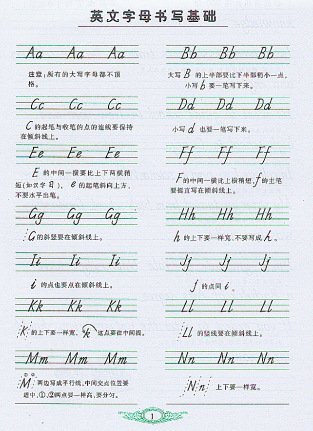 英文字母书写基础
Aa Aa Aa
Bb Bb Bb
注意:所有的大写字母都不顶
格。
大写 B 的上半部要比下半部稍小一点,
小写 b 要一笔写下来。
Cc Cc Cc
Dd Dd Dd
C 的起笔与收笔的点的连线要保持
在倾斜线上。
小写 d 也要一笔写下来。
Ee Ee Ee
Ff Ff Ff
E 的中间一横要比上下两横稍
短(如汉字 ), e 的起笔斜向上方,
不要水平出笔。
F 的中间一横比上横稍短, f 的主笔
要挺直写在倾斜线上。
Gg Gg Gg
Hh Hh Hh
G 的斜竖要在倾斜线上。
h 的上下要一样宽,不要写成 。
Ii Ii Ii
Jj Jj Jj
i 的点也要点在倾斜线上。
j 的点同 i 。
Kk Kk Kk
Ll Ll Ll
K 的上下要一样宽, k 这点要在中间提。
Ll 的竖线要在倾斜线上。
Mm Mm Mm
Nn Nn Nn
M 两边写成平行线,中间交点位置要
适中,①、②两点要一样高,要分匀。
Nn 上下要一样宽。
1